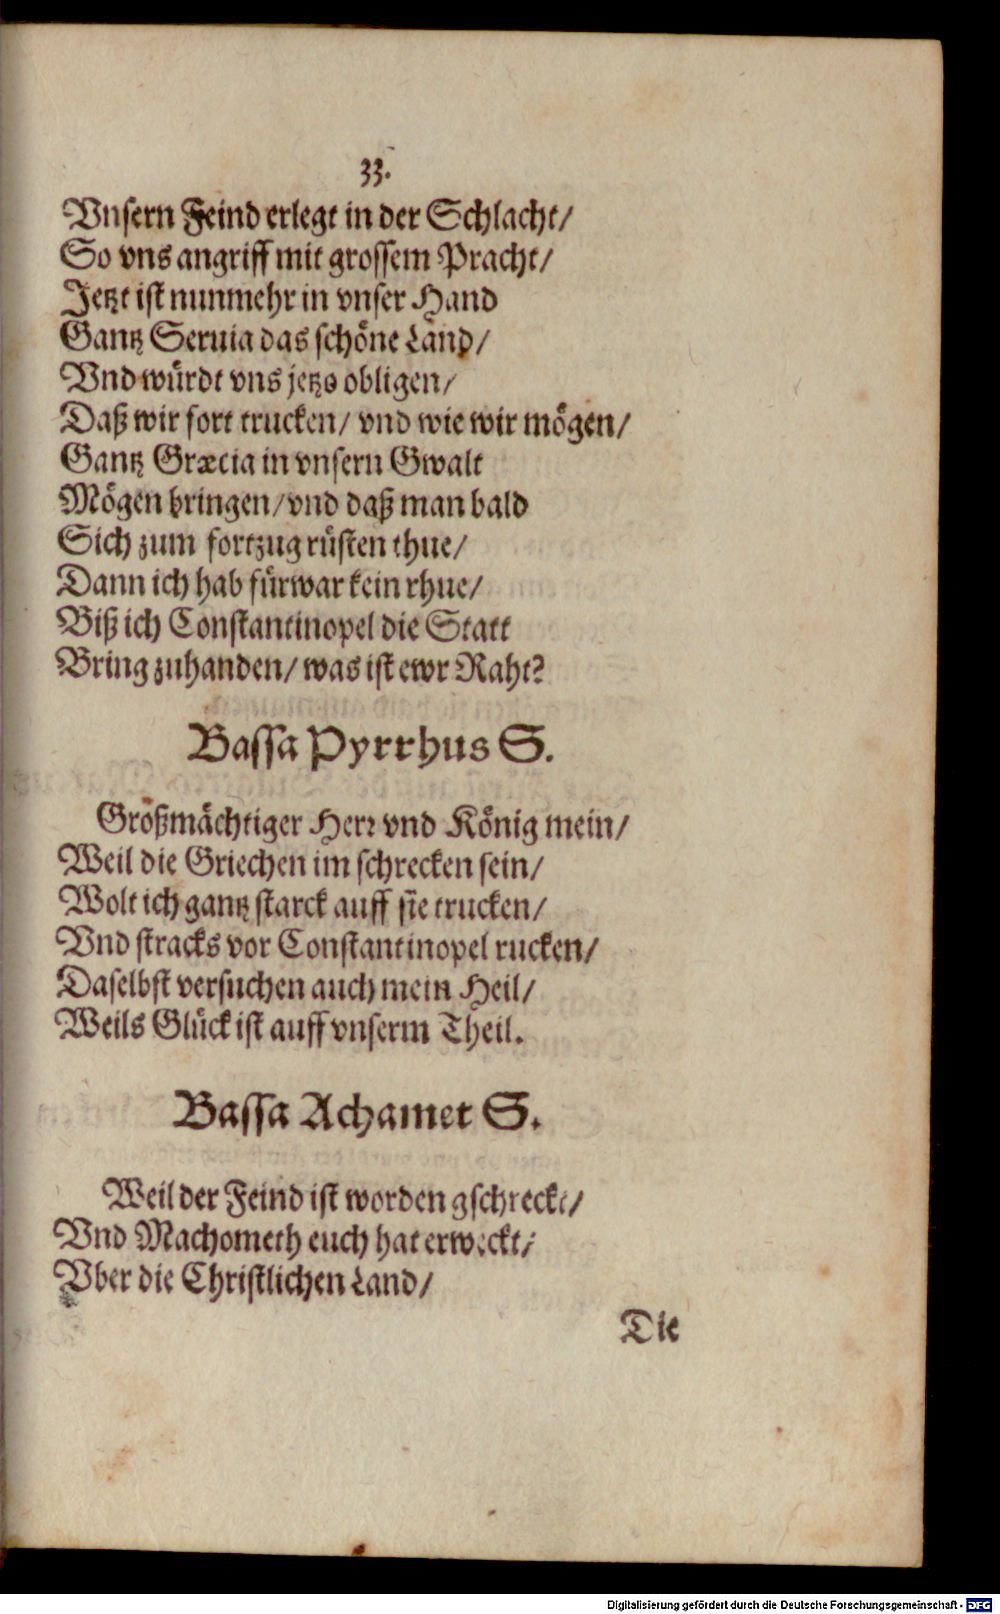 33.
Vnsern Feind erlegt in der Schlacht/
So vns angriff mit grossem Pracht/
Jetzt ist nunmehr in vnser Hand
Gantz Seruia das schöne Land/
Vnd würdt vns jetzo obligen/
Daß wir fort trucken/ vnd wie wir mögen/
Gantz Græcia in vnsern Gwalt
Mögen bringen/ vnd daß man bald
Sich zum fortzug rüsten thue/
Dann ich hab fürwar kein rhue/
Biß ich Constantinopel die Statt
Bring zuhanden/ was ist ewr Raht?
Bassa Pyrrhus S.
Großmächtiger Herr vnd König mein/
Weil die Griechen im schrecken sein/
Wolt ich gantz starck auff sie trucken/
Vnd stracks vor Constantinopel rucken/
Daselbst versuchen auch mein Heil/
Weils Glück ist auff vnserm Theil.
Bassa Achamet S.
Weil der Feind ist worden gschreckt/
Vnd Machometh euch hat erweckt/
Vber die Christlichen Land/
Die
Digitalisierung gefördert durch die Deutsche Forschungsgemeinschaft - DFG